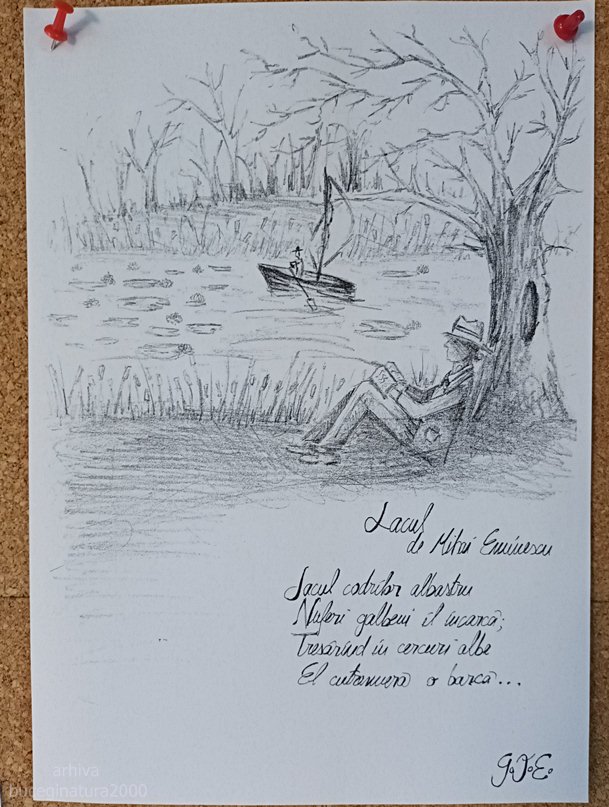 Lacul
de Mihai Eminescu
Lacul codrilor albastru
Nuferi galbeni îl încarcă;
Tresărind în cercuri albe
El cutremură o barcă...
G.J.E.
arhiva
buceginatura2000